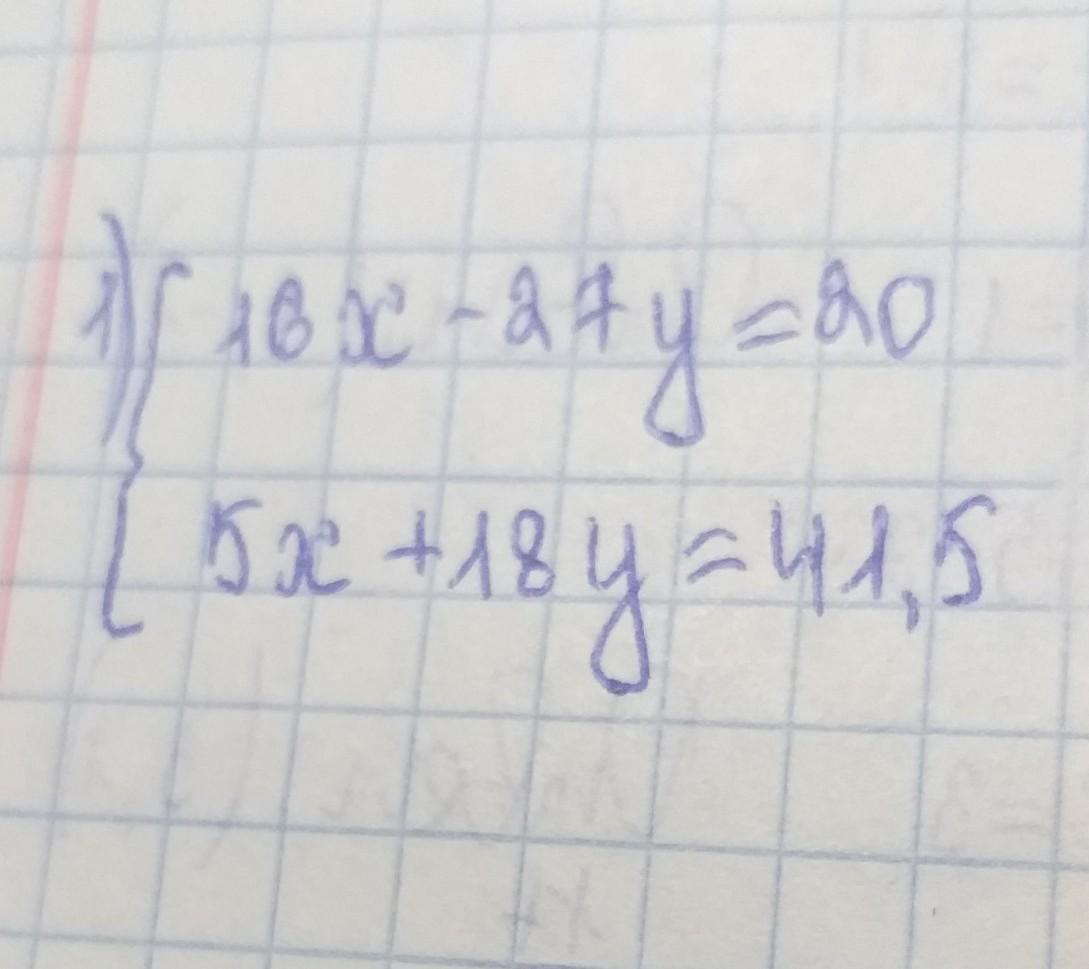 1) 16x - 27y = 20
5x + 18y = 41,5